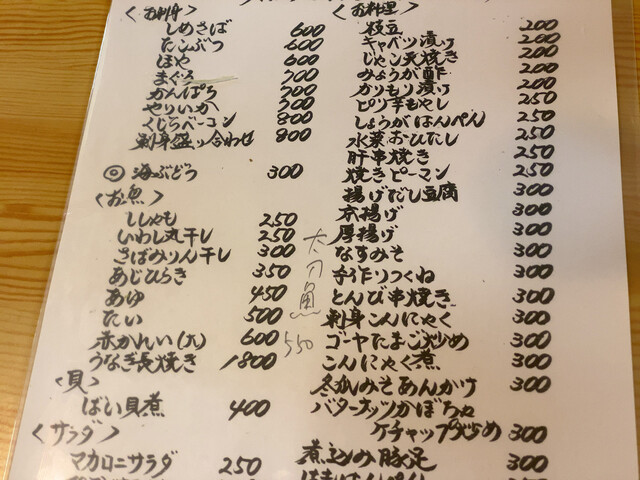 〈お刺身〉
しめさば 600
たこぶつ 600
ほや 600
まぐろ 700
かんぱち 700
やりいか 700
くじらベーコン 800
刺身盛り合わせ 800
◎ 海ぶどう 300
〈お魚〉
ししゃも 250
いわし丸干し 250
さばみりん干し 300
あじひらき 350
あゆ 450
たい 500
赤かれい(大) 600
うなぎ長焼き 1800
太刀魚 550
〈貝〉
ばい貝煮 400
〈サラダ〉
マカロニサラダ 250
〈お料理〉
枝豆 200
キャベツ漬け 200
じゃこ天焼き 200
みょうが酢 200
かりもり漬け 200
ピリ辛もやし 250
しょうがはんぺん 250
水菜おひたし 250
肝串焼き 250
焼きピーマン 250
揚げだし豆腐 300
厚揚げ 300
なすみそ 300
手作りつくね 300
とんび串焼き 300
刺身こんにゃく 300
ゴーヤたまご炒め 300
こんにゃく煮 300
冬瓜みそあんかけ 300
バターナッツかぼちゃ
ケチャップ炒め 300
煮込み豚足 300